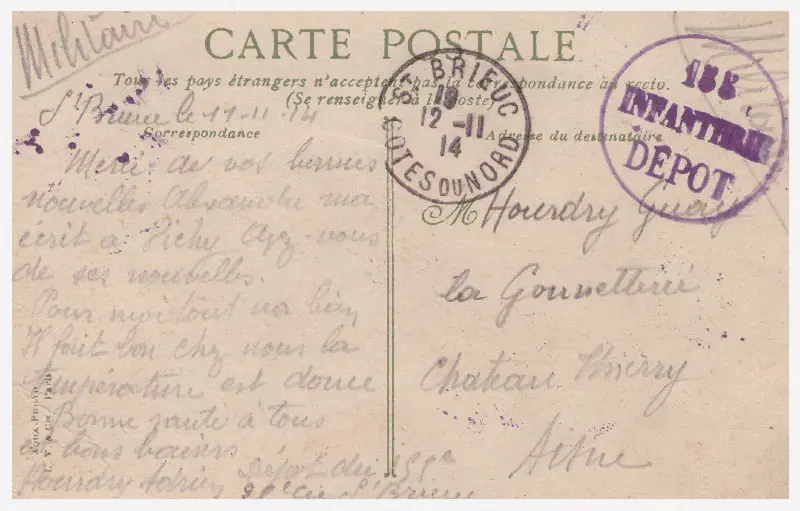 Militaire
CARTE POSTALE
Tous les pays étrangers n'acceptent pas la correspondance au recto.
(Se renseigner à la poste)
ST BRIEUC
18
12 -11
14
COTES DU NORD
INFANTERIE
DÉPOT
St Brieuc le 11-11-14
Correspondance
Adresse du destinataire
Merci de vos bonnes
nouvelles Alexandre m'a
écrit à Vichy Avez-vous
de ses nouvelles.
Pour moi tout va bien
Il fait bon chez nous la
température est douce
Bonne santé à tous
et bons baisers
Hourdry Adrien Dépôt du
St Brieuc
M Hourdry
la
Chateau Thierry
Aisne
AQUA-PHOTO
L. V. & Cie Paris